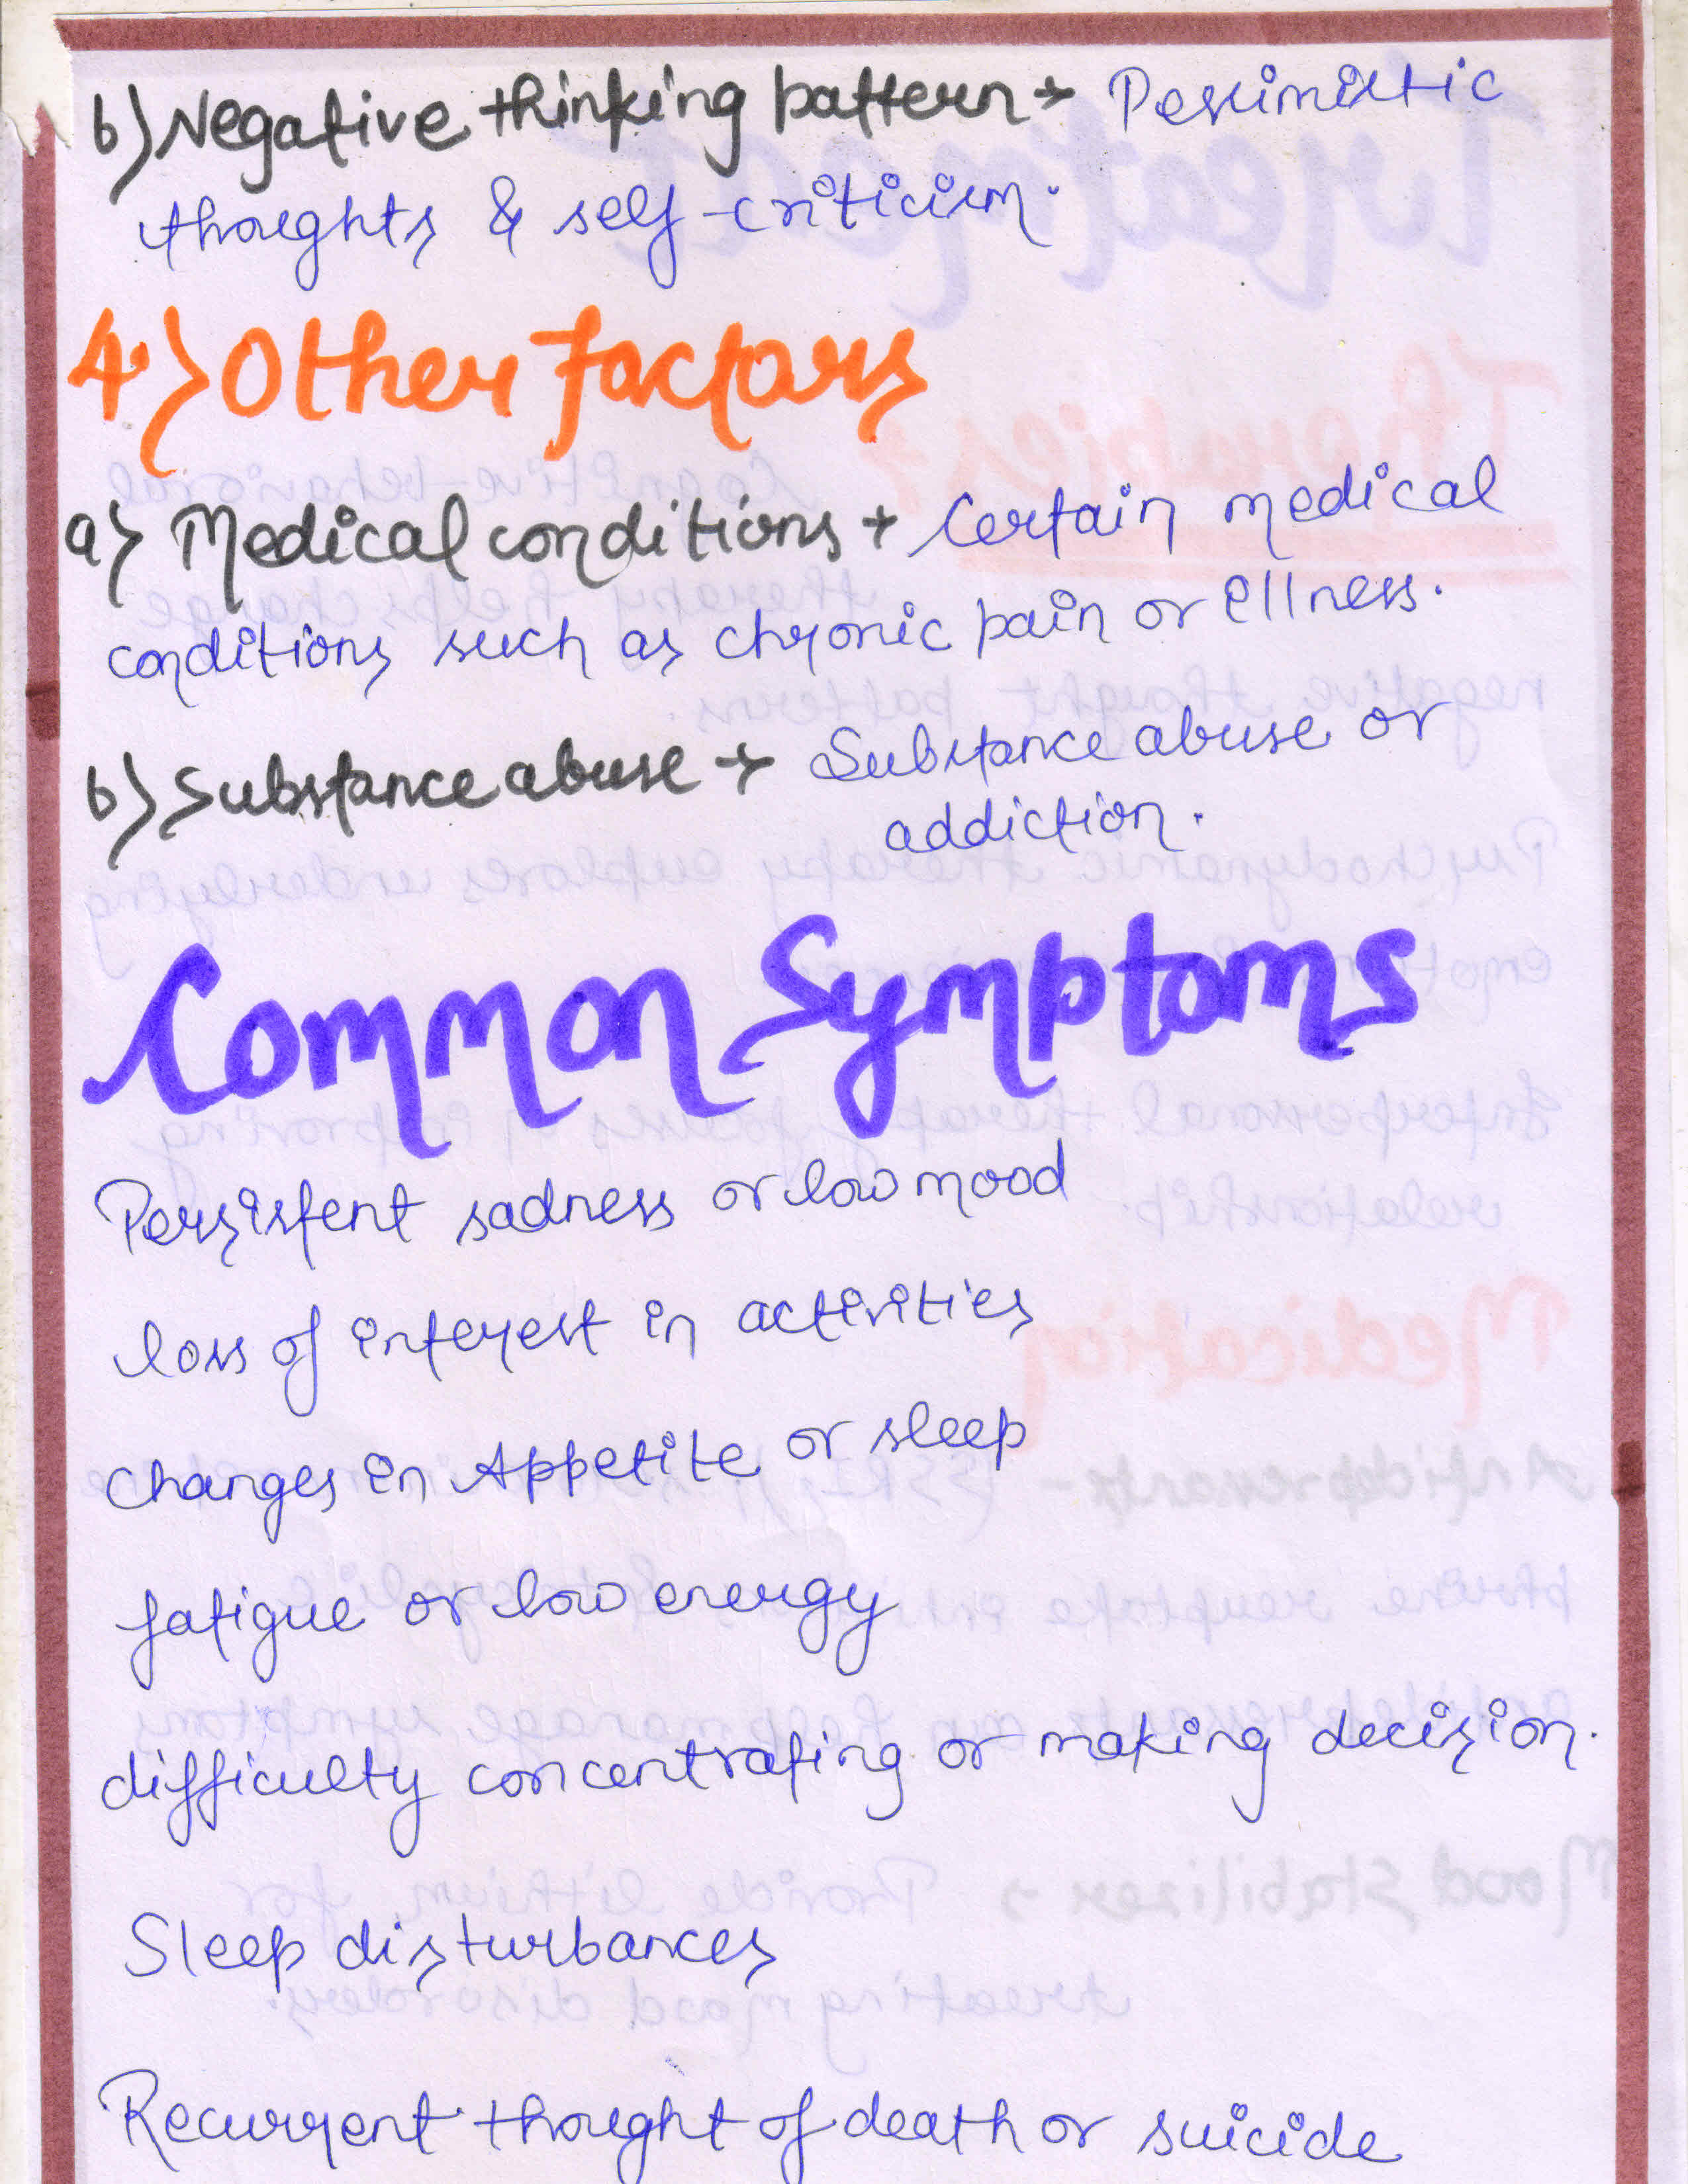 b) Negative thinking pattern → Pessimistic
thoughts & self-criticism.
4.) Other factors
a) Medical conditions → Certain medical
conditions such as chronic pain or illness.
b) Substance abuse → Substance abuse or
addiction.
Common Symptoms
Persistent sadness or low mood
loss of interest in activities
changes in Appetite or sleep
fatigue or low energy
difficulty concentrating or making decision.
Sleep disturbances
Recurrent thought of death or suicide